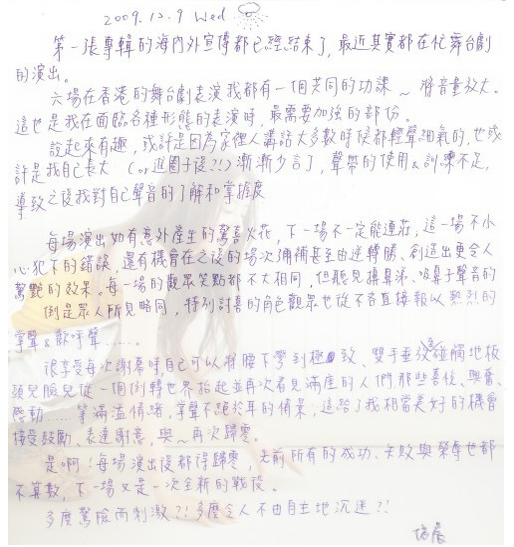 2009.12.9 Wed
第一張專輯的海內外宣傳都已經結束了,最近其實都在忙舞台劇
的演出。
六場在香港的舞台劇表演我都有一個共同的功課~將音量放大。
這也是我在面臨各種形態的表演時,最需要加強的部份。
說起來有趣,或許是因為家裡人講話大多數時候都輕聲細氣的,也或
許是我自己長大(or進圈子後?!)漸漸少言了,聲帶的使用&訓練不足,
導致之後我對自己聲音的了解和掌握度
每場演出如有意外產生的驚喜火花,下一場不一定能連莊,這一場不小
心犯下的錯誤,還有機會在之後的場次彌補甚至由逆轉勝、創造出更令人
驚艷的效果。每一場的觀眾笑點都不太相同,但聽見擤鼻涕、吸鼻子聲音的
倒是眾人所見略同,特別討喜的角色觀眾也從不吝直接報以熱烈的
掌聲&歡呼聲……。
很享受每次謝幕時自己可以將腰下彎到極致、雙手垂後碰觸地板
頭兒臉兒從一個倒轉世界抬起並再次看見滿座的人們那些喜悅、興奮、
感動……等滿溢情緒,掌聲不絕於耳的情景,這給了我相當美好的機會
接受鼓勵、表達謝意,與~再次歸零。
是啊!每場演出後都得歸零,先前所有的成功、失敗與榮辱也都
不算數,下一場又是一次全新的戰役。
多麼驚險而刺激?!多麼令人不由自主地沉迷?!